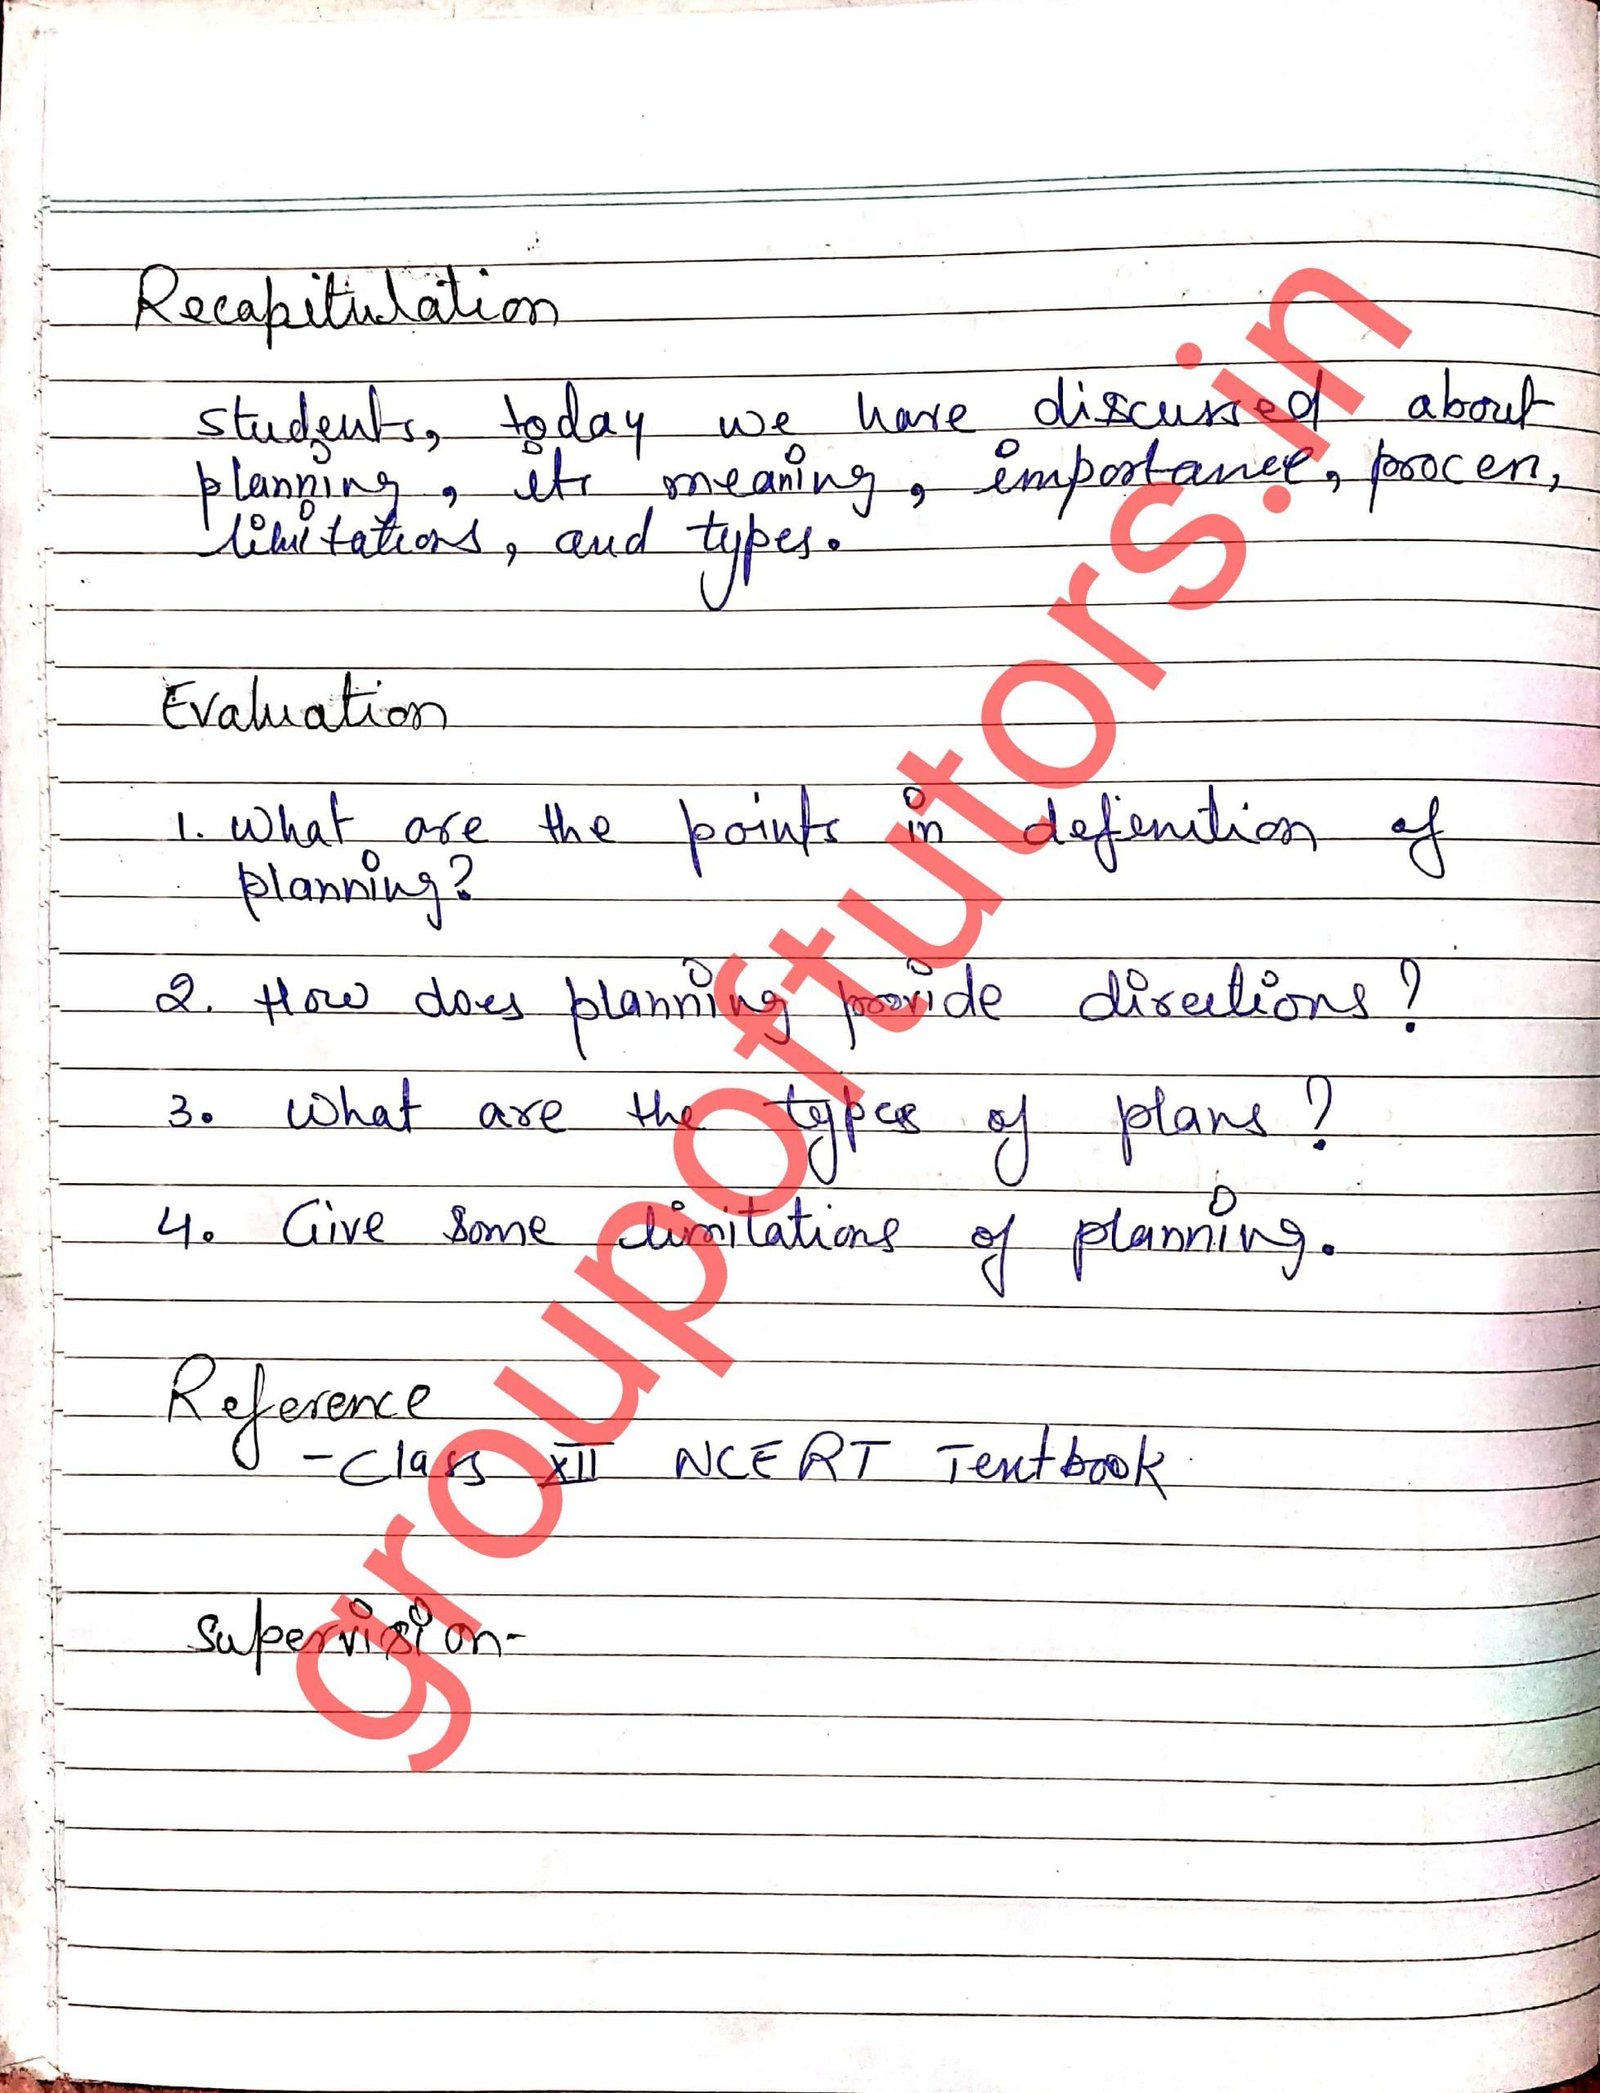 Recapitulation
students, today we have discussed about
planning, its meaning, importance, process,
limitations, and types.
Evaluation
1. What are the points in defenition of
planning?
2. How does planning provide directions?
3. What are the types of plans?
4. Give some limitations of planning.
Reference
- Class XII NCERT Textbook
Supervision-
groupoftutors.in